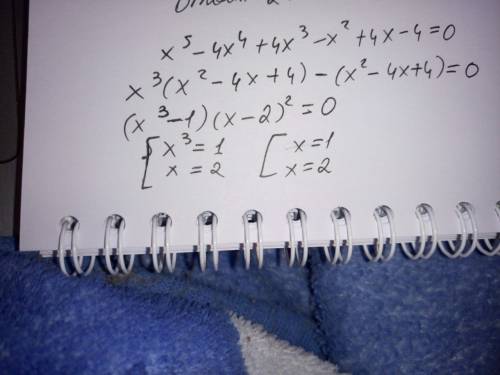 x⁵ - 4x⁴ + 4x³ - x² + 4x - 4 = 0
x³(x² - 4x + 4) - (x² - 4x + 4) = 0
(x³ - 1)(x - 2)² = 0
[ x³ = 1 [ x = 1
x = 2 x = 2